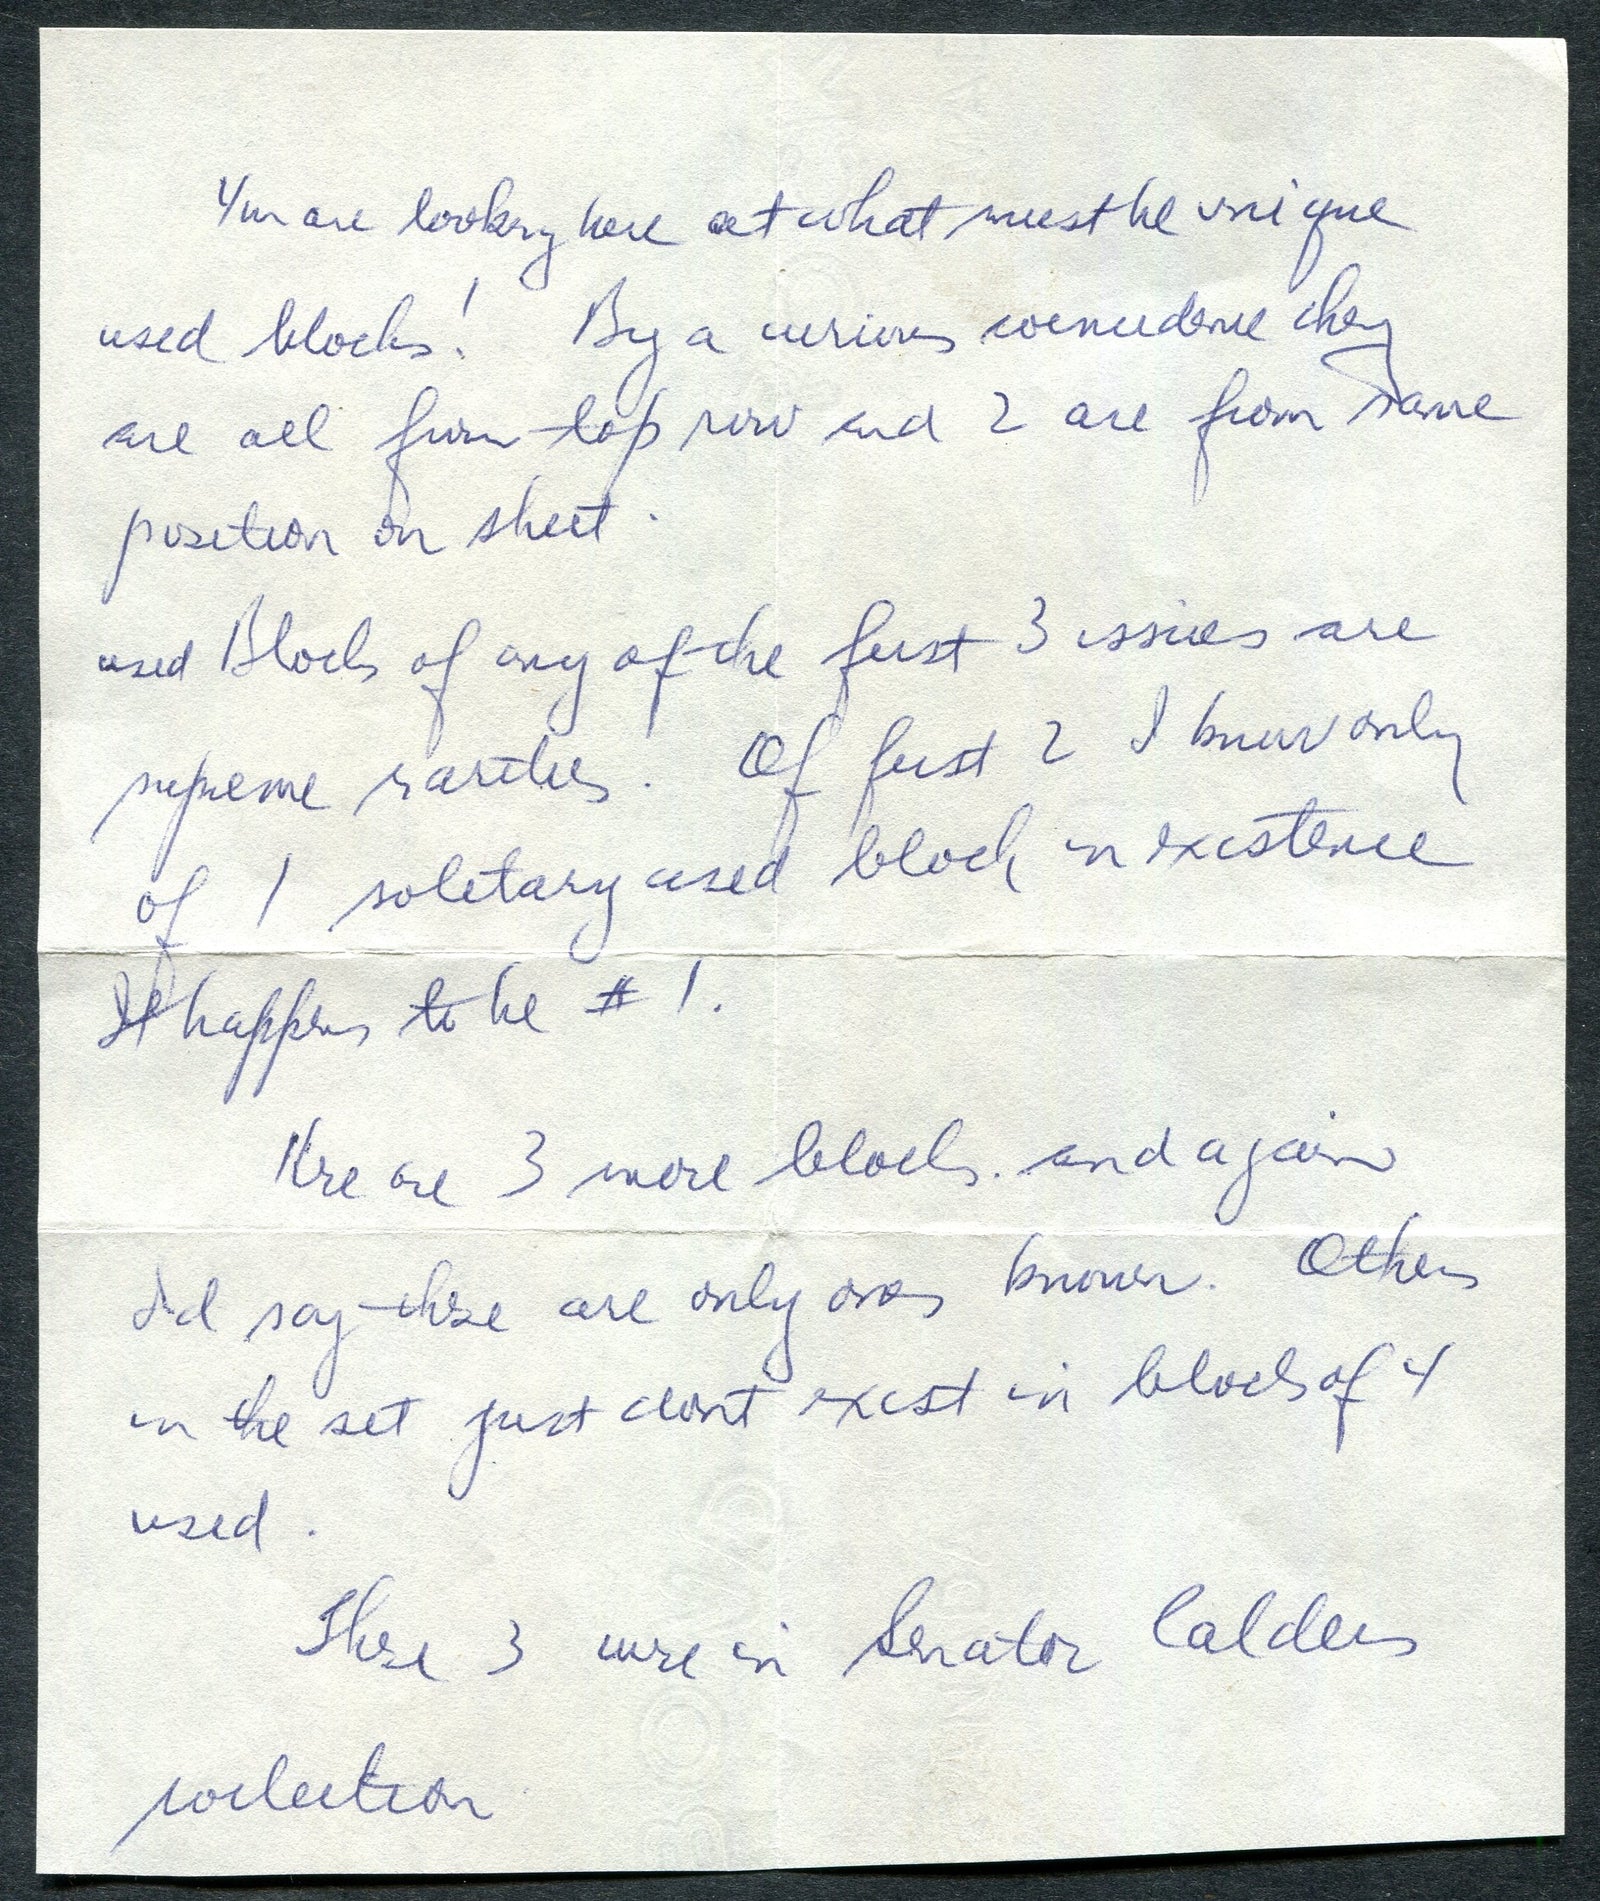 You are looking here at what must be unique
used blocks! By a curious coincidence they
are all from top row and 2 are from same
position on sheet.
used Blocks of any of the first 3 issues are
supreme rarities. Of first 2 I know only
of 1 solitary used block in existence
It happens to be # 1.
Here are 3 more blocks. and again
I'd say these are only ones known. Others
in the set just dont exist in blocks of 4
used.
These 3 were in Senator Calders
collection